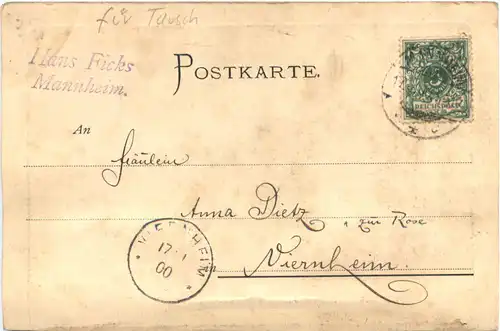 für Tausch
Hans Ficks
Mannheim.
POSTKARTE.
An
Fräulein
Anna Dietz
zur Rose
in Viernheim.
VIERNHEIM
17 1
00